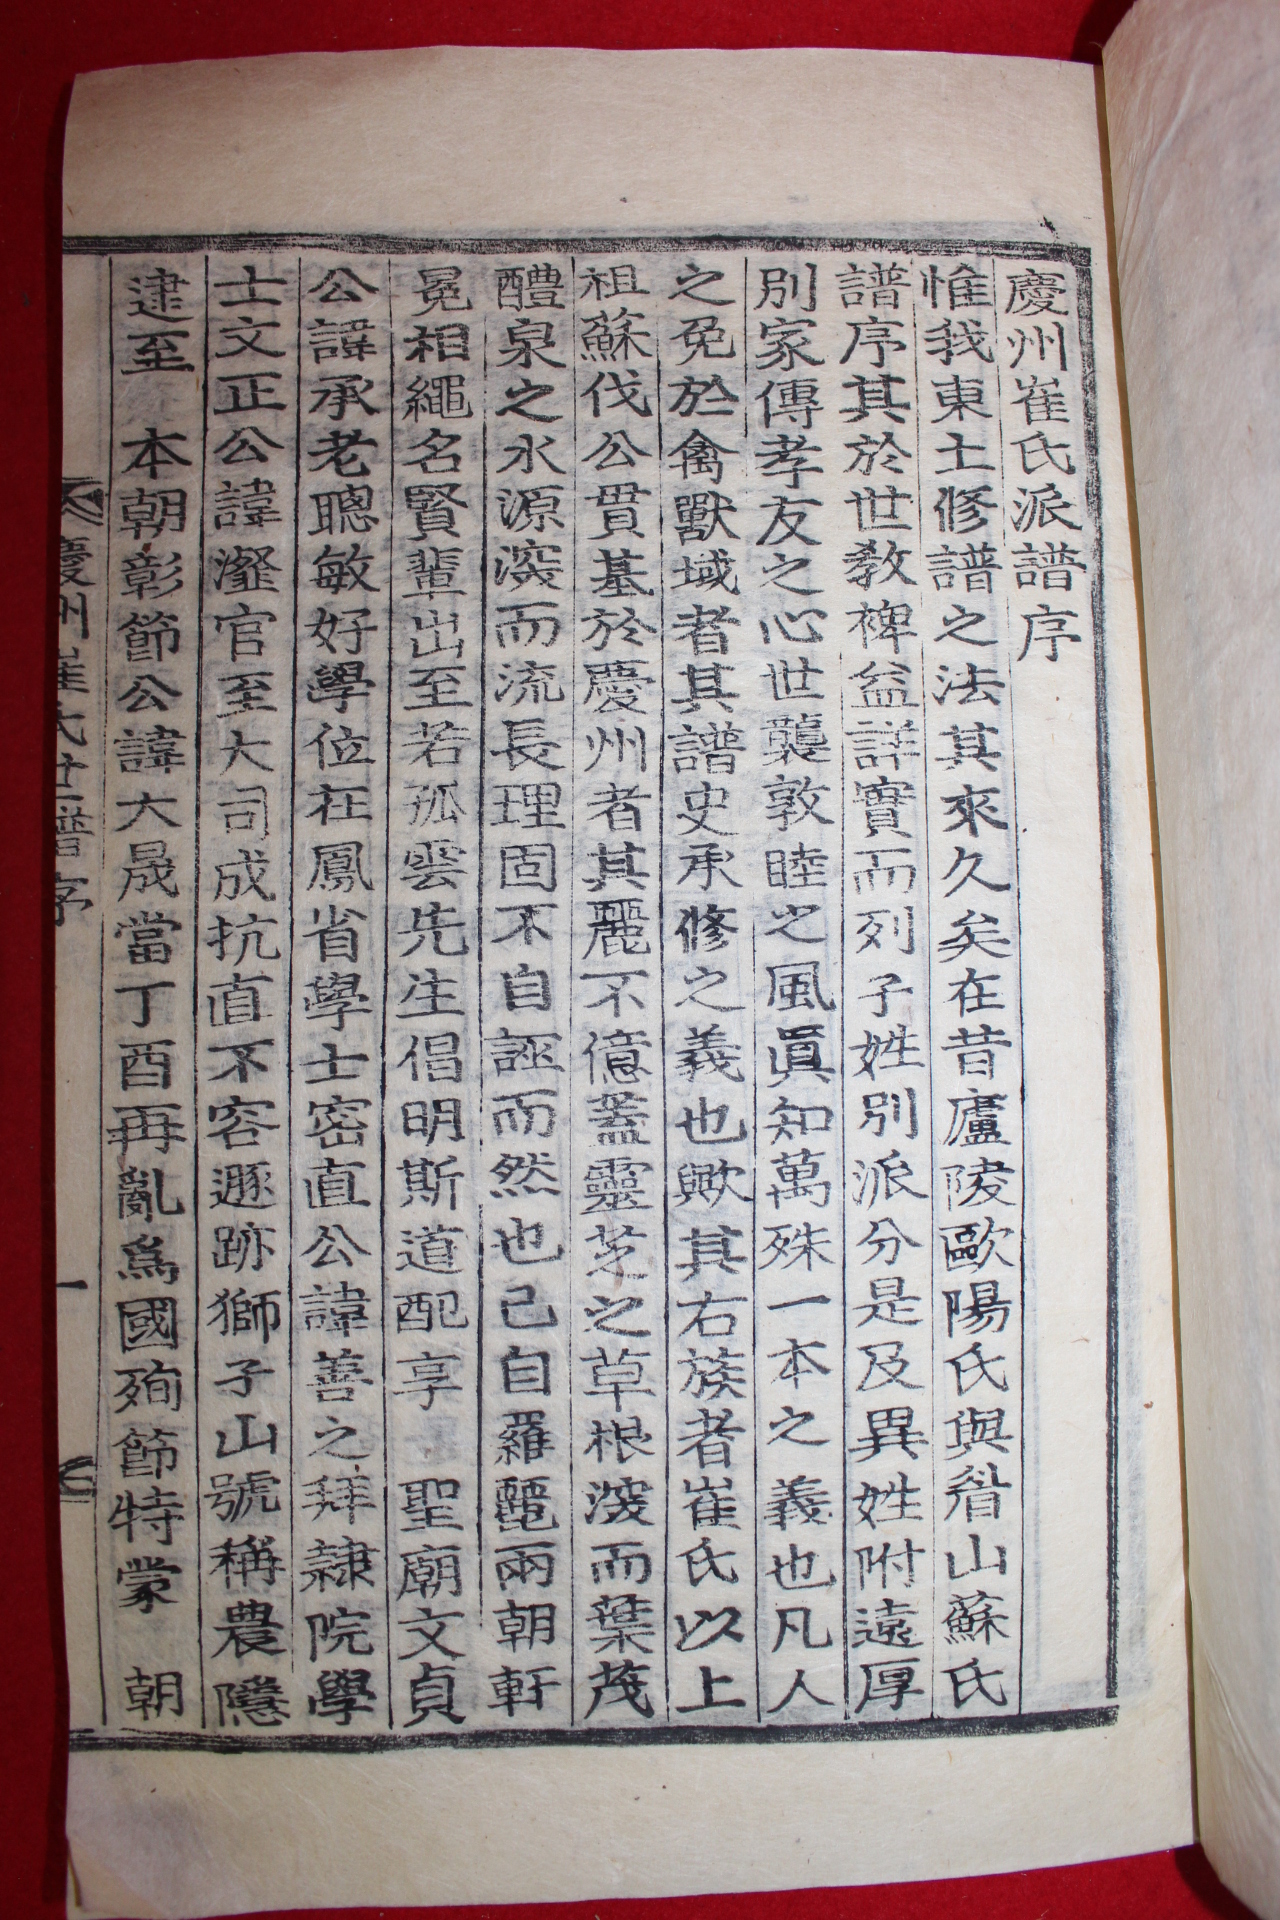 慶州崔氏派譜序
惟我東土修譜之法其來久矣在昔廬陵歐陽氏與眉山蘇氏
譜序其於世教裨益詳實而列子姓別派分是及異姓附遠厚
別家傳孝友之心世襲敦睦之風眞知萬殊一本之義也凡人
之免於禽獸域者其譜史承修之義也歟其右族者崔氏以上
祖蘇伐公貫基於慶州者其麗不億蓋靈芝之草根深而葉茂
醴泉之水源深而流長理固不自誣而然也己自羅麗兩朝軒
冕相繩名賢輩出至若孤雲先生倡明斯道配享 聖廟文貞
公諱承老聰敏好學位在鳳省學士密直公諱善之拜隷院學
士文正公諱瀣官至大司成抗直不容遯跡獅子山號稱農隱
逮至 本朝彰節公諱大晟當丁酉再亂爲國殉節特蒙 朝
慶州崔氏世譜序 一